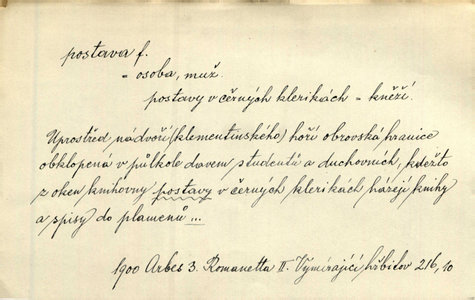 postava f.
= osoba, muž.
postavy v černých klerikách = kněží.
Uprostřed nádvoří (klementinského) hoří obrovská hranice
obklopená v půlkole davem studentů a duchovních, kdežto
z oken knihovny postavy v černých klerikách házejí knihy
a spisy do plamenů ...
1900 Arbes 3. Romanetta II. Vymírající hřbitov 216, 10